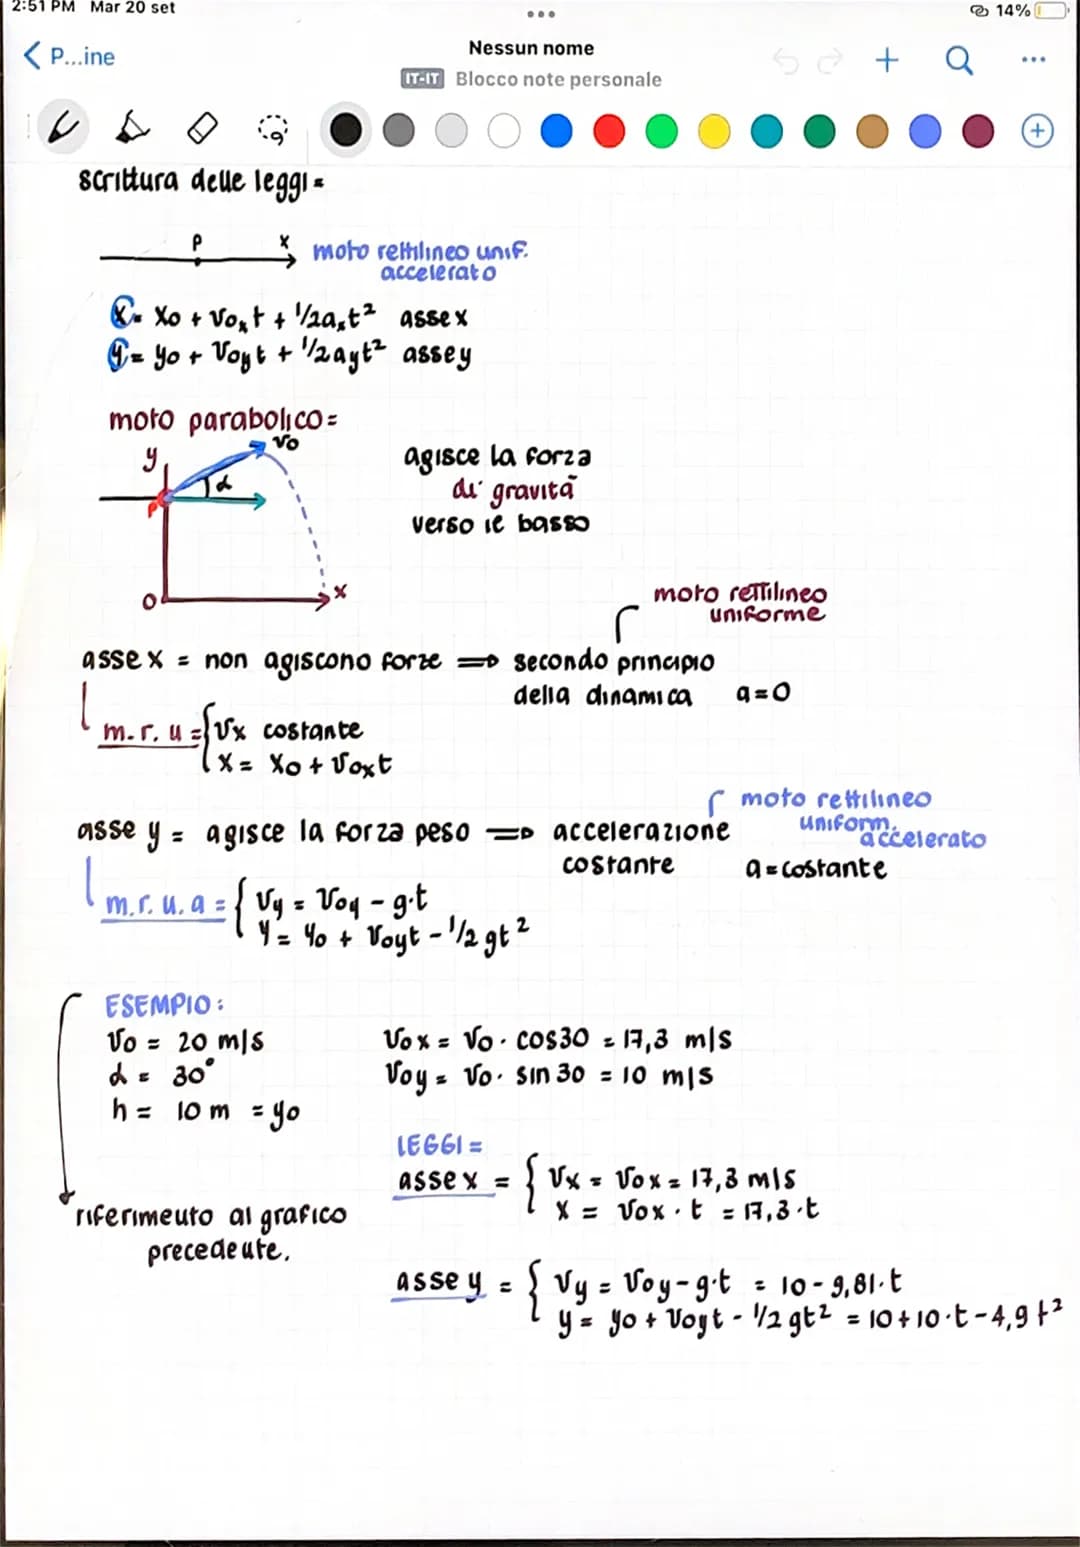 2:51 PM Mar 20 set
14%
P...ine
Nessun nome
IT-IT Blocco note personale
scrittura delle leggi =
P x moto rettilineo unif.
accelerato
x = x₀ + v₀ₓt + 1/2aₓt² asse x
y = y₀ + v₀yt + 1/2ayt² asse y
moto parabolico =
y v₀
α
P
agisce la forza
di gravità
verso il basso
O x
moto rettilineo
uniforme
asse x = non agiscono forze ⟹ secondo principio
della dinamica a=0
m.r.u = { vx costante
x = x₀ + v₀xt
moto rettilineo
uniform.
accelerato
asse y = agisce la forza peso ⟹ accelerazione
costante a = costante
m.r.u.a = { vy = v₀y - g·t
y = y₀ + v₀yt - 1/2 gt²
ESEMPIO:
v₀ = 20 m/s v₀x = v₀ · cos30 = 17,3 m/s
α = 30° v₀y = v₀ · sin 30 = 10 m/s
h = 10 m = y₀
LEGGI =
asse x = { vx = v₀x = 17,3 m/s
x = v₀x · t = 17,3·t
riferimento al grafico
precedente.
asse y = { vy = v₀y - g·t = 10 - 9,81·t
y = y₀ + v₀yt - 1/2 gt² = 10 + 10·t - 4,9 t²